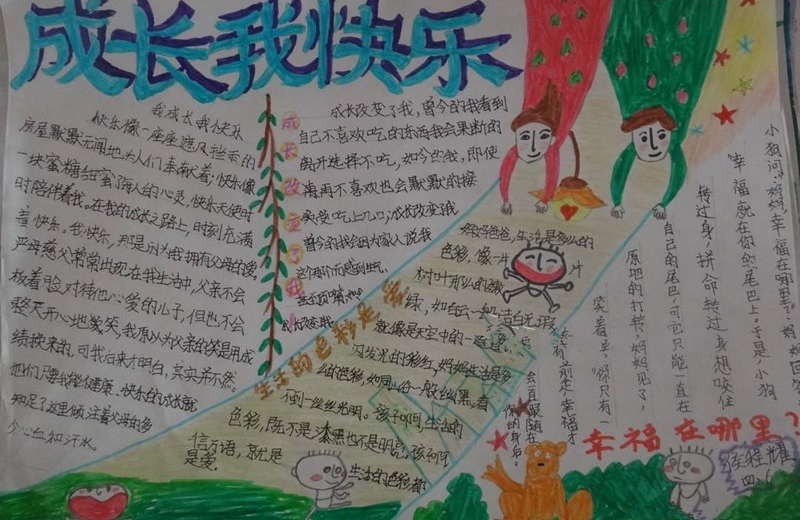 成长我快乐
我成长我快乐
快乐像一座座遮风挡雨的
房屋默默无闻地为人们奉献着;快乐像
一块蜜糖甜蜜
人的心灵,快乐天使时
时陪伴着我。在我的成长之路上,时刻充满
着快乐。我快乐,那是因为我拥有父母的爱。
严母慈父常常出现在我生活中,父亲不会
板着脸对待他心爱的儿子,但也不会
整天开心地微笑,我原以为父亲的笑是用成
绩换来的,可我后来才明白,其实并不然。
他们只要我能健康、快乐的成长就
知足了这里倾注着父母的多
少心血和汗水。
成长改变了我
成长改变了我,曾今的我看到
自己不喜欢吃的东西我会果断的
离开选择不吃,如今的我,即使
再不喜欢也会默默的接
受吃上几口;成长改变我
曾今的我会因为家人说我
成长改变我
生活的色彩是爱
爸爸,生活是多么的
色彩,像一片片
树叶那么的嫩
绿,如白云一般洁白无瑕
就像是天空中的一道
闪发光的彩虹,妈妈生活是多
么的色彩,如同山谷一般丝黑,看
不到一丝丝光明。孩子啊,生活的
色彩,既不是漆黑也不是明亮,孩子啊
相信我的话,就是
是爱。
生活的色彩都
幸福在哪里?
小狗问:“妈妈,幸福在哪里?”妈妈回答
“幸福就在你的尾巴上。”于是小狗
转过身,拼命转过身想咬住
自己的尾巴,可它只能一直在
原地的打转,妈妈见了,
笑着说:“你只有一
直往前走,幸福才
会一直跟随在
你的身后。”
四、6